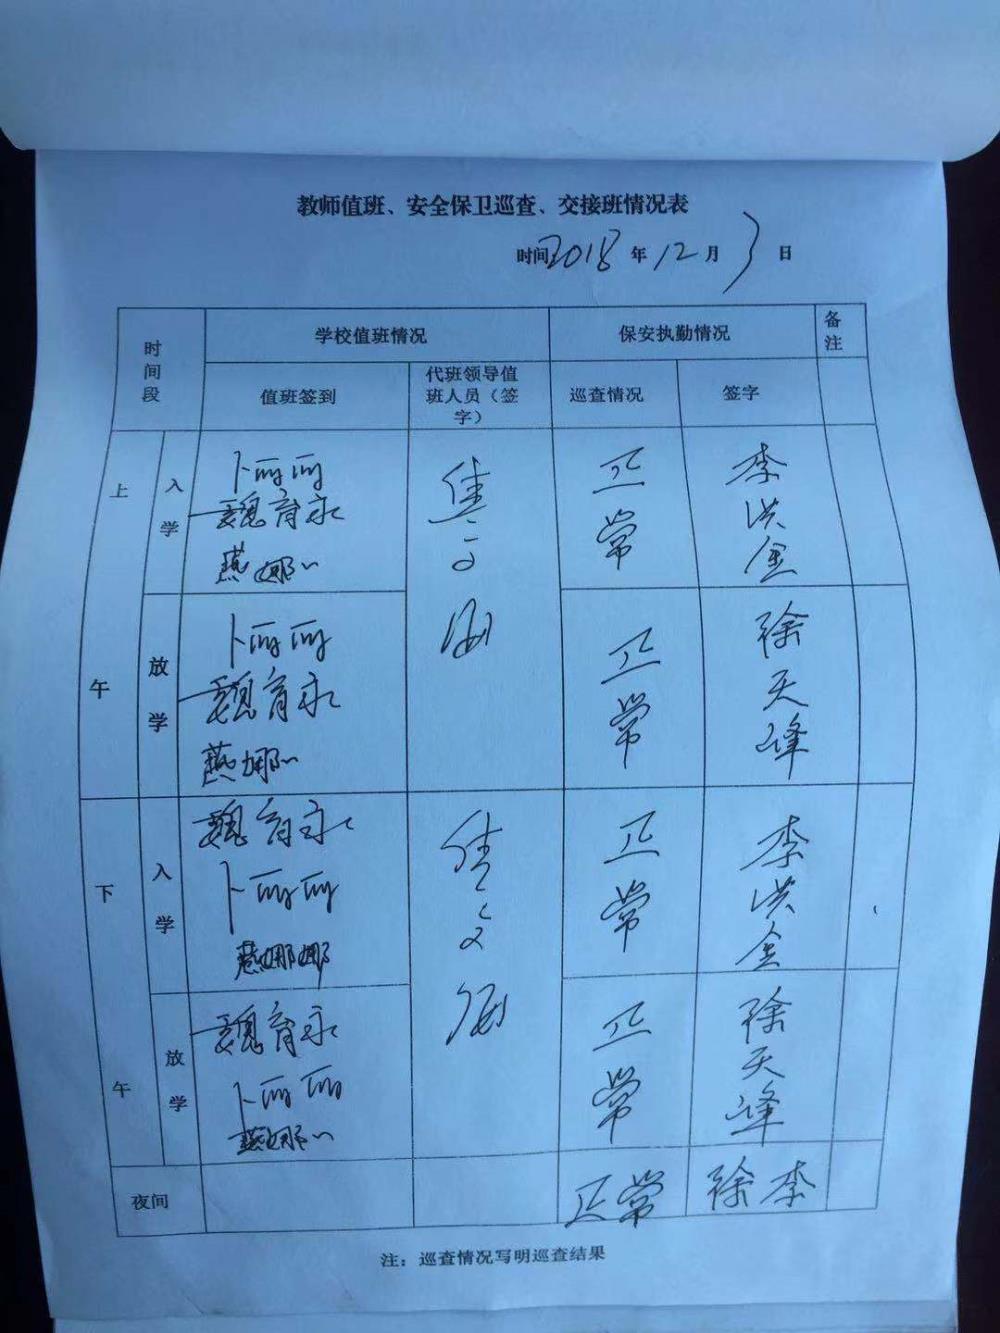 教师值班、安全保卫巡查、交接班情况表
时间2018年12月3日
时间段
学校值班情况
保安执勤情况
备注
值班签到
代班领导值班人员（签字）
巡查情况
签字
上午
入学
卜丽丽
魏育永
燕娜〃
正常
李洪金
放学
卜丽丽
魏育永
燕娜〃
正常
徐天峰
下午
入学
魏育永
卜丽丽
燕娜娜
正常
李洪金
放学
魏育永
卜丽丽
燕娜〃
正常
徐天峰
夜间
正常
徐李
注：巡查情况写明巡查结果